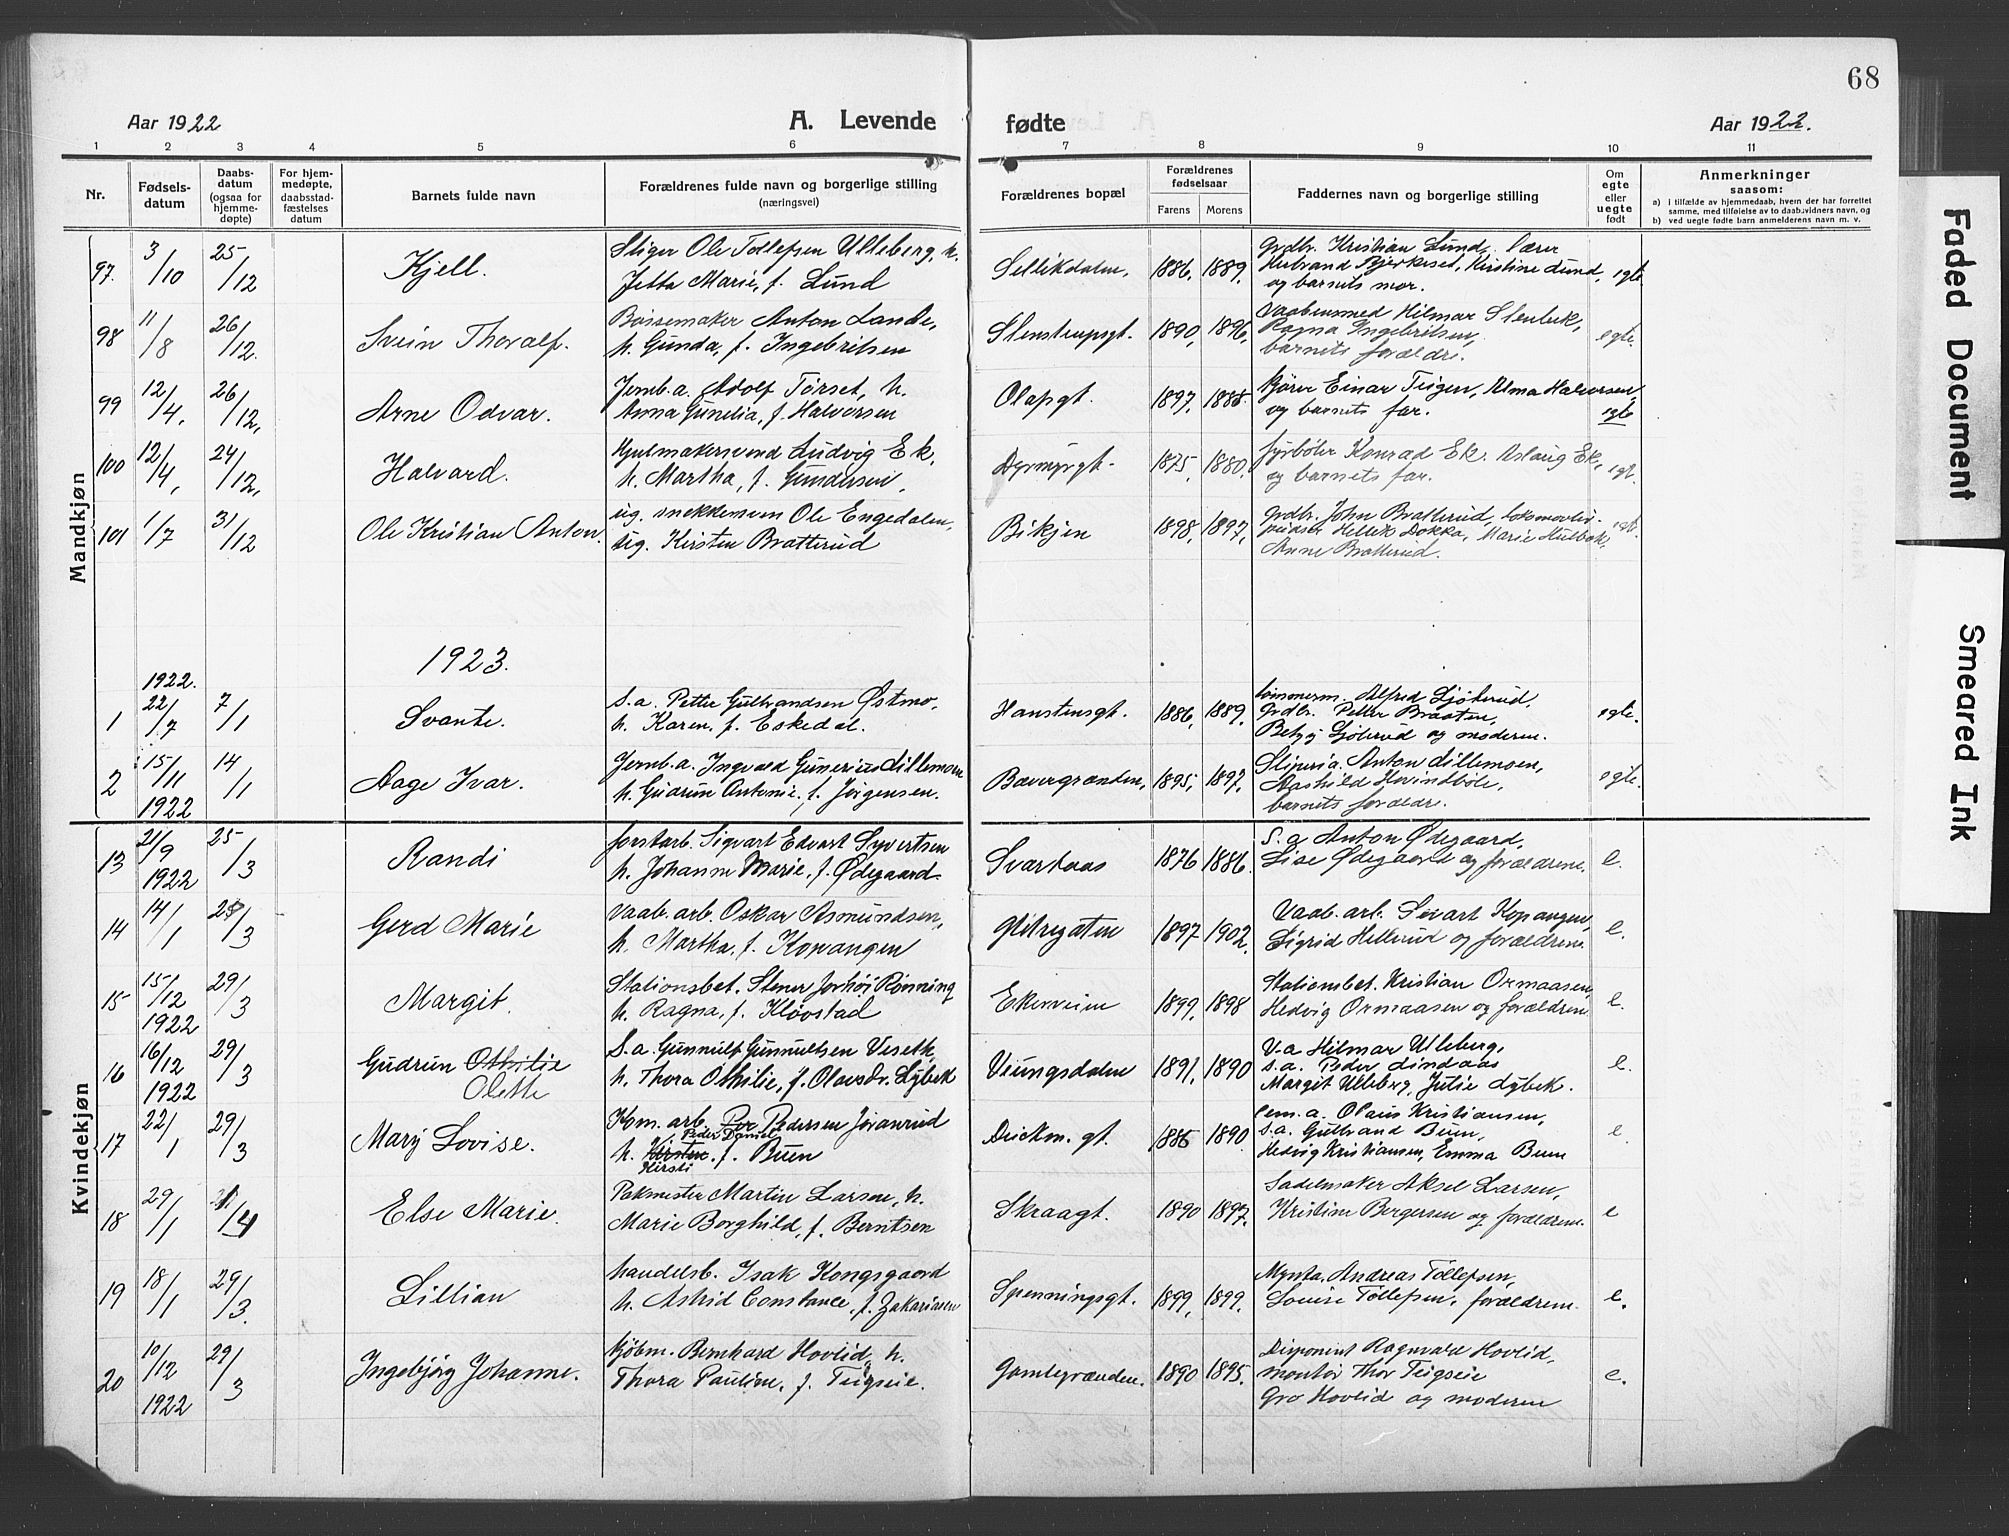 68
Aar 1922
A. Levende
fødte
Aar 1922.
1 2 3 4 5 6 7 8 9 10 11
Nr.
Fødsels-
datum
Daabs-
datum
(ogsaa for
hjemme-
døpte)
For hjem-
medøpte,
daabsstad-
fæstelses
datum
Barnets fulde navn
Forældrenes fulde navn og borgerlige stilling
(næringsvei)
Forældrenes bopæl
Forældrenes
fødselsaar
Farens Morens
Faddernes navn og borgerlige stilling
Om
egte
eller
uegte
født
Anmerkninger
saasom:
a) i tilfælde av hjemmedaab, hvem der har forrettet
samme, med tilføielse av to daabsvidners navn, og
b) ved uegte fødte barn anmelderens navn m. v.
Mandkjøn
97. 3/10 25/12 Kjell. Stiger Ole Tollefsen Ulleberg, h.
Jetta Marie, f. Lund
Sellikdalen, 1886, 1889, Grdbr. Kristian Lund, lærer
Herbrand Bjerkeset, Kristine Lund,
og barnets mor. egte
98 11/8 26/12. Svein Thoralf. Bøssemaker Anton Lande,
h. Gunda, f. Ingebritsen
Stenstrupsgt. 1890, 1896, Vaabensmed Hilmar Stenbek,
Ragna Ingebritsen,
barnets forældre. egte.
99 12/4, 26/12, Arne Odvar. Jernb.a. Adolf Tørset, h.
Anna Gunelia, f. Halvorsen
Olafsgt. 1897, 1888. Kjører Einar Teigen, Alma Halvorsen,
og barnets far. egte
100 12/4, 24/12, Halvard. Hjulmakersvend Ludvig Ek,
h. Martha, f. Gundersen,
Dyrmyrgt. 1875, 1880, Fyrbøter Konrad Ek. Aslaug Ek,
og barnets far. egt.
101 1/7 31/12 Ole Kristian Anton. ug. snekkersven Ole Engedalen,
ug. Kirsten Bratterud
Bikjen 1898, 1897, Grdbr. John Bratterud, lokomotiv-
pudser Hellik Dokka, Marie Hulbak,
Anne Bratterud.
1923.
1922.
1 22/7 7/1 Svante. S.a. Petter Gulbrandsen Østmo,
h. Karen, f. Eskedal.
Hanstensgt. 1886, 1889, tømmerm. Alfred Ljøterud,
Grdbr. Petter Braaten,
Betzy Ljøterud og moderen. egte.
2 15/11 1922 14/1 Aage Ivar. Jernb.a. Ingvald Gunerius Lillemoen
h. Gudrun Antonie, f. Jørgensen.
Bævergrænden, 1895, 1897, Sliperia. Anton Lillemoen,
Aashild Hovindbøle,
barnets forældr. egte.
Kvindekjøn
13 21/9 1922 25/3 Randi forstarb. Sigvart Edvart Syvertsen
h. Johanne Marie, f. Ødegaard.
Svartaas 1876 1886. S.a Anton Ødegaard,
Lise Ødegaard og forældrene. e.
14 14/1 25/3 Gerd Marie Vaab. arb. Oskar Asmundsen,
h. Martha, f. Kopangen
Glitregaten 1897 1902. Vaab. arb. Sivart Kopangen,
Sigrid Hellerud og forældrene. e.
15 15/12 1922 29/3 Margit. Stationsbet. Stener Jorhøi Rønning
h. Ragna, f. Kløvstad
Ekerveien 1899, 1898 Stationsbet. Kristian Ormaasen,
Hedvig Ormaasen og forældrene e.
16 16/12 1922 29/3 Gudrun Othilie
Olette
S.a. Gunnulf Gunnulfsen Veseth,
h. Thora Othilie, f. Olavsdr. Lybek
Veungsdalen 1891, 1890 V.a Hilmar Ulleberg,
s.a. Peder Lindaas
Margit Ulleberg, Julie Lybek. e.
17 22/1 29/3 Mary Lovise. Kom. arb. Per Pedersen Joranrud
Peder Daniel
h. Kirsten. f. Buen
Kirsti
Dickm. gt. 1886 1890 Cem.a. Olaus Kristiansen,
S.a. Gulbrand Buen,
Hedvig Kristiansen, Emma Buen e.
18 29/1 /4 Else Marie. Pakmester Martin Larsen, h.
Marie Borghild, f. Berntsen
Skraagt. 1890 1897. Sadelmaker Aksel Larsen,
Kristine Bergersen og forældrene. e
19 18/1 29/3. Lillian handelsb. Isak Kongsgaard
h. Astrid Constance, f. Zakariasen
Spenningsgt. 1899, 1899, Mynta. Andreas Tollefsen,
Louise Tollefsen, forældrene. e.
20 10/12 1922 29/3 Ingebjørg Johanne. Kjøbm. Bernhard Hovlid, h.
Thora Pauline, f. Teigseie.
Gamlegrænden. 1890 1895. Disponent Ragnvald Hovlid,
montør Thor Teigseie
Gro Hovlid og moderen e.
Faded Document
Smeared Ink